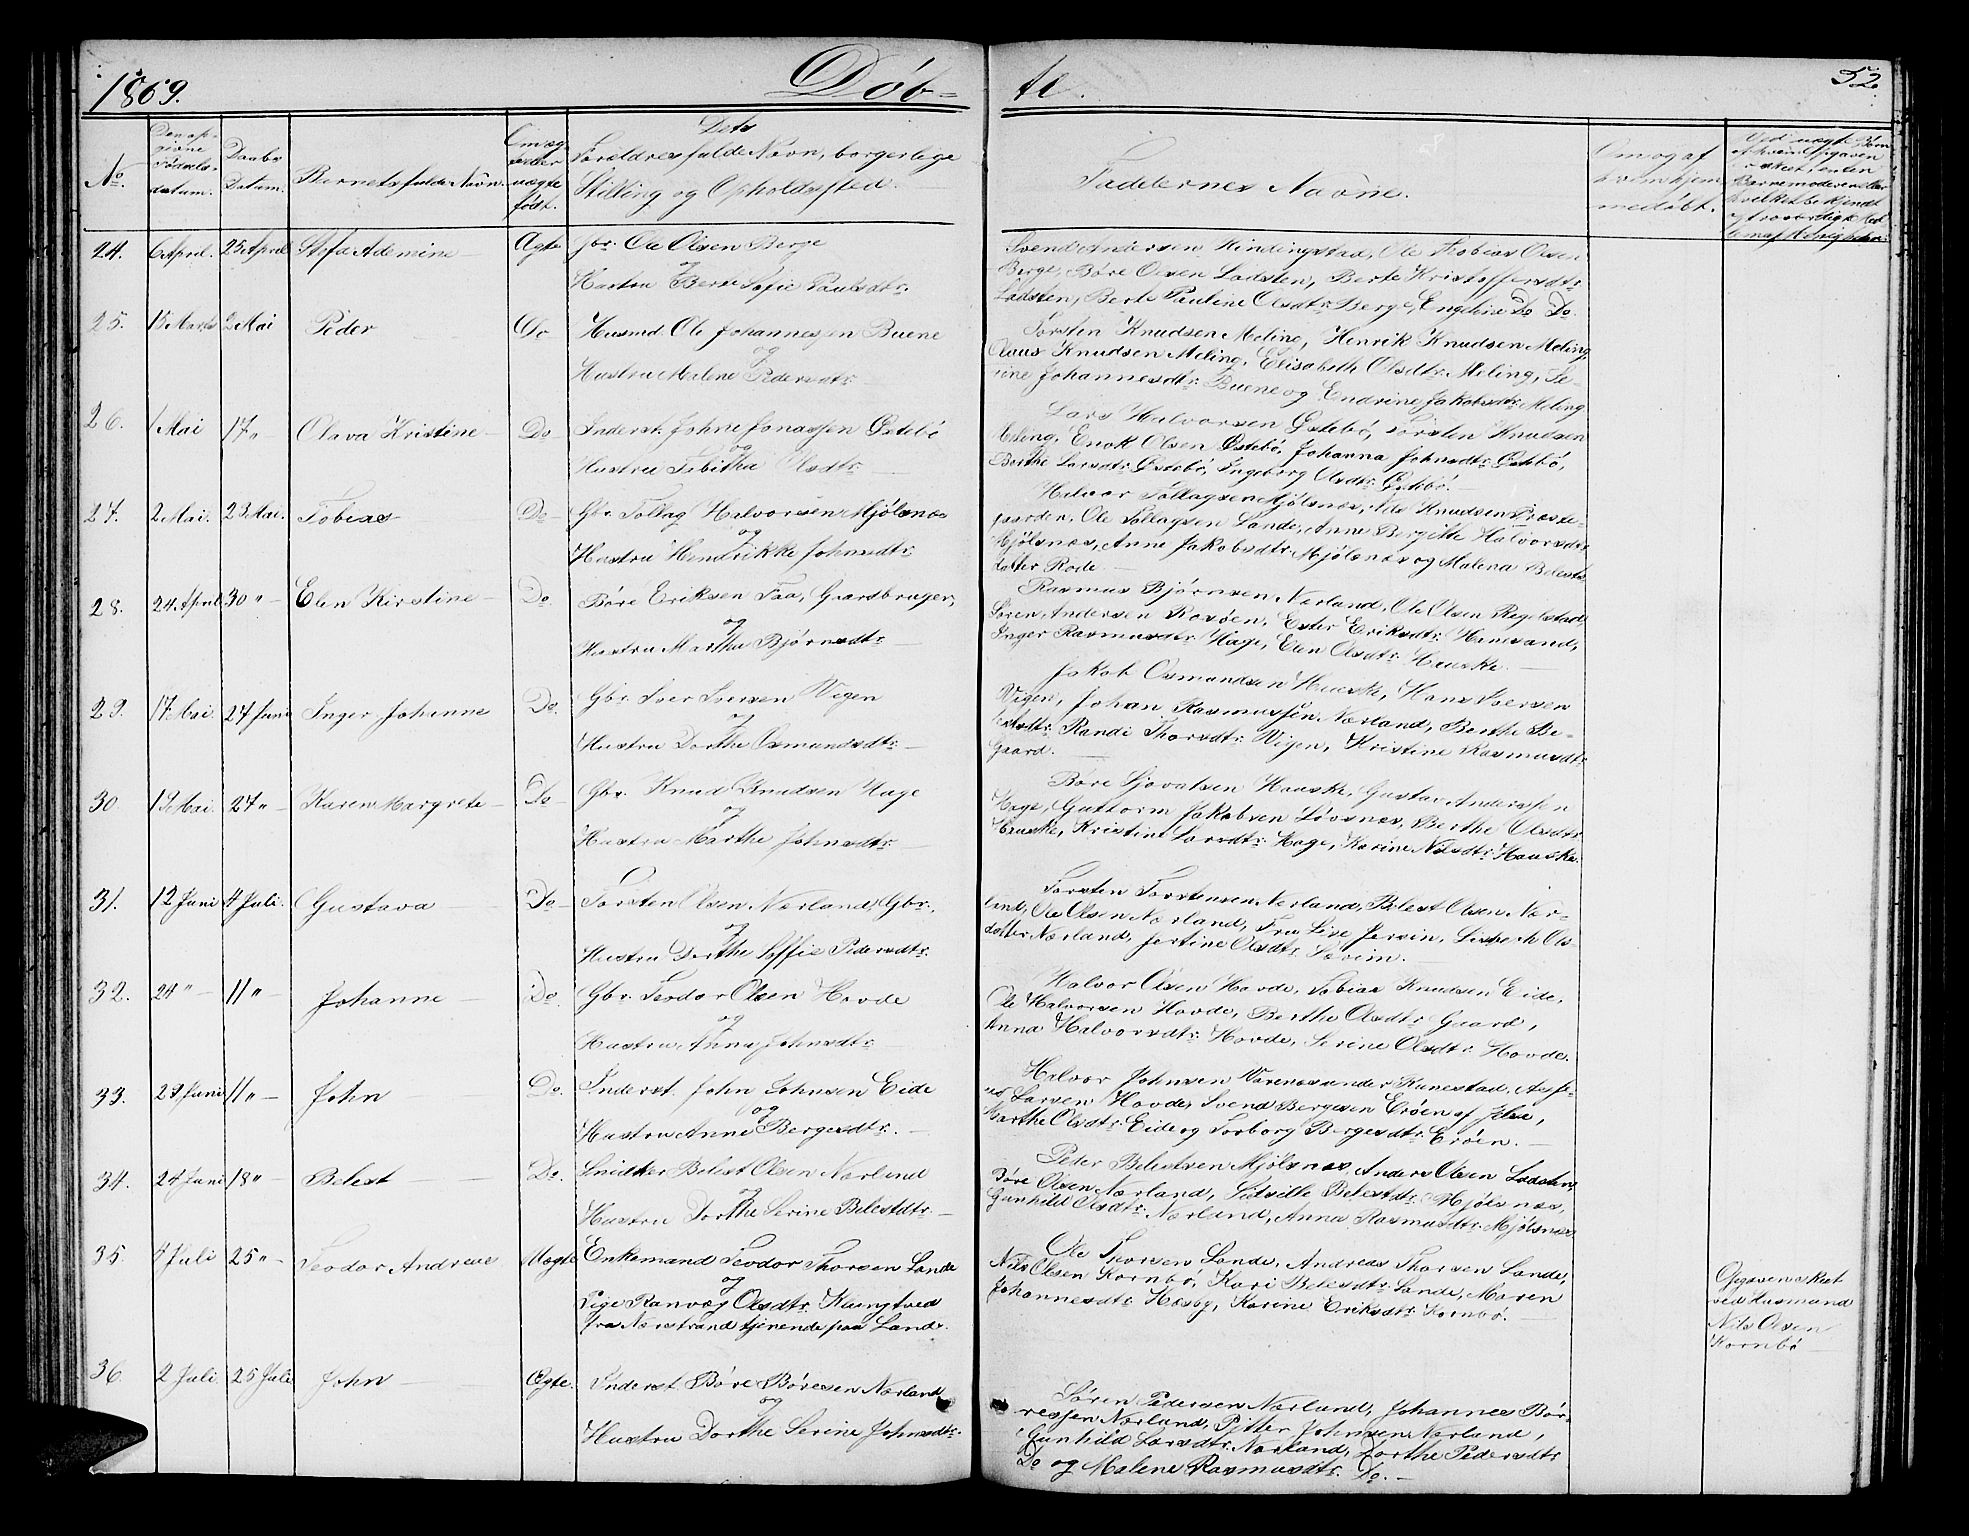 1869.
Döb-
te.
52.
No.
Den op-
givne
Födsels-
datum.
Daabs
Datum.
Barnets fulde Navn.
Om æg-
te eller
uægte
födt.
Dets
Forældres fulde Navn, borgerlige
Stilling og Opholdssted.
Faddernes Navne.
Om og af
hvem hjem-
medöbt.
Ved uægte Börn
af hvem Opgaven
er skeet, enten
Barnemoderen eller
24.
6 April.
25 April
Ademine
Ægte
Gbr. Ole Olsen Berge
og
Hustru Berte Sofie Paulsdtr.
Svend Andersen Hindingstad, Ole Tobias Olsen
Berge, Böre Olsen Ladsten, Berte Kristoffersdtr.
Ladsten, Berte Pauline Olsdtr. Berge, Engeline Do Do.
25.
15 Marts
2 Mai
Peder
Do
Husmd. Ole Johannesen Buene
og
Hustru Malene Pedersdtr.
Torsten Knudsen Meling, Henrik Knudsen Meling,
Claus Knudsen Meling, Elisabeth Olsdtr. Meling, Se-
rine Johannesdtr. Buene og Endrine Jakobsdtr. Meling
26.
1 Mai
17 "
Olava Kristine
Do
Inderst. Johne Jonassen Östebö
og
Hustru Tibitha Olsdtr.
Lars Halvorsen Östebö, Torsten Knudsen
Meling, Enok Olsen Östebö, Johanna Johnsdtr. Östebö,
Berthe Larsdtr. Östebö, Ingeborg Olsdtr. Östebö.
27.
2 Mai.
23 Mai.
Tobias
Do
Gbr. Tollag Halvorsen Mjölsnæs
og
Hustru Hendrikke Johnsdtr.
Halvor Tollagsen Mjölsnæs, Nils Knudsen Præste-
gaarden, Ole Tollagsen Lande, Anne Bergitte Halvorsdtr.
Mjölsnæs, Anne Jakobsdtr. Mjölsnæs og Malena Belests-
datter Rode
28.
24 April
30 "
Elen Kirstine
Do
Böre Eriksen Faa, Gaardbruger,
og
Hustru Martha Björnsdtr.
Rasmus Björnsen Nærland, Ole Olsen Ragelstad,
Sören Andersen Rosöen, Ester Eriksdtr.
Inger Rasmusdtr. Hage, Elen Olsdtr. Hauske.
29.
17 Mai.
24 Juni
Inger Johanne
Do.
Gbr. Iver Iversen Vigen
og
Hustru Dorthe Osmundsdtr.
Jakob Osmundsen Hauske, Hans Iversen
Vigen, Johan Rasmussen Nærland, Berthe Be-
lestsdtr. Randi Thorsdtr. Vigen, Kristine Rasmusdtr.
Gaard.
30
13 Mai.
24 "
Karen Margrete
Do
Gbr. Knud Knudsen Hage
og
Hustru Marthe Johnsdtr.
Böre Sjovalsen Hauske, Gustav Anderssen
Hage, Guttorm Jakobsen Lövsnæs, Berthe Olsdtr.
Hauske, Kristine Larsdtr. Hage, Karine Nilsdtr. Hauske.
31.
12 Juni
4 Juli.
Gustava
Do
Torsten Olsen Nærland, Gbr.,
og
Hustru Dorthe Soffie Pedersdtr.
Torsten Torstensen Nærland, Belest Olsen Nær-
land, Ole Olsen Nærland, Fru Lise Jersin, Lisbeth Ols-
datter Nærland, Jertine Olsdtr. Særim.
32.
24 "
11 "
Johanne
Do.
Gbr. Teodor Olsen Hovde
og
Hustru Anna Johnsdtr.
Halvor Olsen Hovde, Tobias Knudsen Eide,
Ole Halvorsen Hovde, Berthe Olsdtr. Gaard,
Anna Halvorsdtr. Hovde, Serine Olsdtr. Hovde.
33.
29 Juni
11 "
John
Do.
Inderst. John Johnsen Eide
og
Hustru Anne Bergesdtr.
Halvor Johnsen Varenæs under Runestad, Asse-
us Larsen Hovde, Svend Bergesen Eröen af Jelse,
Marthe Olsdtr. Eide og Torborg Bergesdtr. Eröen.
34.
24 Juni
18 "
Belest
Do.
Snidker Belest Olsen Nærland
og
Hustru Dorthe Serine Belestdtr.
Peder Belestsen Mjölsnæs, Anders Olsen Ladsten,
Böre Olsen Nærland, Sidville Belestdtr. Mjölsnæs,
Gunhild Olsdtr. Nærland, Anna Rasmusdtr. Mjölsnæs
35.
4 Juli
25 "
Teodor Andreas
Uægte
Enkemand Teodor Thorsen Lande
og
Pige Ranvæg Olsdtr. Klungtved
fra Nærstrand tjenende paa Lande.
Ole Thorsen Lande, Andreas Thorsen Lande,
Nils Olsen Kornbö, Kari Belestdtr. Lande, Maren
Johannesdtr. Hæsby, Karine Eriksdtr. Kornbö.
Opgaven skeet
ved Husmand
Nils Olsen
Kornbö
36.
2 Juli.
25 Juli
John
Ægte.
Inderst. Böre Böresen Nærland
og
Hustru Dorthe Serine Johnsdtr.
Sören Pedersen Nærland, Johannes Bör-
resen Nærland, Pitter Johnsen Nærland,
Gunhild Larsdtr. Nærland, Dorthe Pedersdtr.
Do og Malene Rasmusdtr. Do.